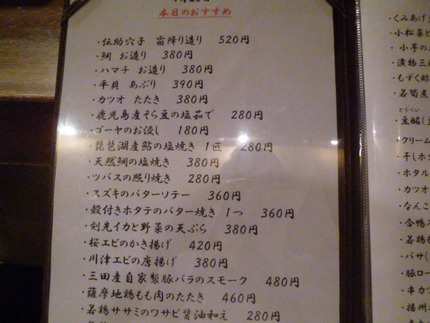 本日のおすすめ
・伝助穴子 霜降り造り 520円
・鯛 お造り 380円
・ハマチ お造り 380円
・平貝 あぶり 390円
・カツオ たたき 380円
・鹿児島産そら豆の塩茹で 280円
・ゴーヤのお浸し 180円
・琵琶湖産鮎の塩焼き 1匹 280円
・天然鯛の塩焼き 380円
・ツバスの照り焼き 280円
・スズキのバターソテー 360円
・殻付きホタテのバター焼き 1つ 360円
・剣先イカと野菜の天ぷら 380円
・桜エビのかき揚げ 420円
・川津エビの唐揚げ 380円
・三田産自家製豚バラのスモーク 480円
・薩摩地鶏もも肉のたたき 460円
・若鶏ササミのワサビ醤油和え 280円
・くみあげ
・小松菜と
・小芋の
・漬物三
・もずく酢
・若筍煮
・クリーム
・干しホ
・ホタル
・カツオ
・なんこ
・合鴨
・若鶏
・バサ(
・豚ロー
・串カツ
・播州